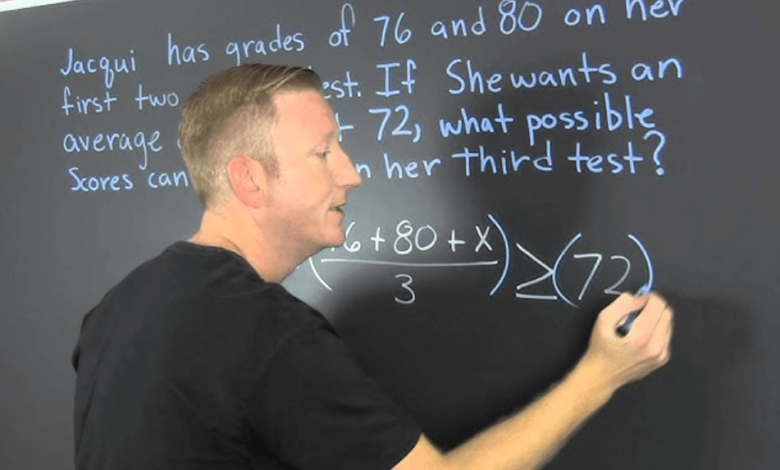 Jacqui has grades of 76 and 80 on her
first two est. If She wants an
average 72, what possible
Scores can n her third test?
(6 + 80 + x) ≥ (72)
3